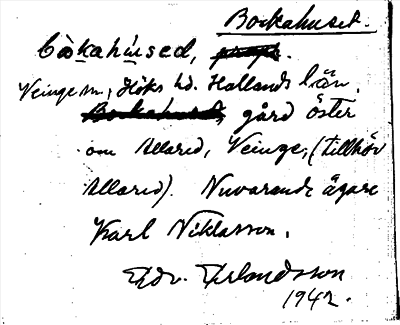 Bockahuset.
bòkahúsed,
Veinge sn, Höks hd. Hallands län.
gård öster
om Allared, Veinge, (tillhör
Allared). Nuvarande ägare
Karl Niklasson.
Edv. Erlandsson
1942.